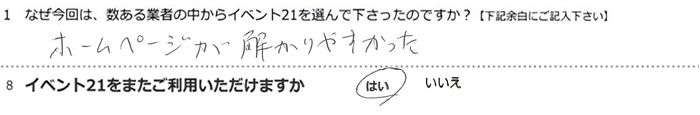 1 なぜ今回は、数ある業者の中からイベント21を選んで下さったのですか？【下記余白にご記入下さい】
ホームページが解かりやすかった
8 イベント21をまたご利用いただけますか はい いいえ